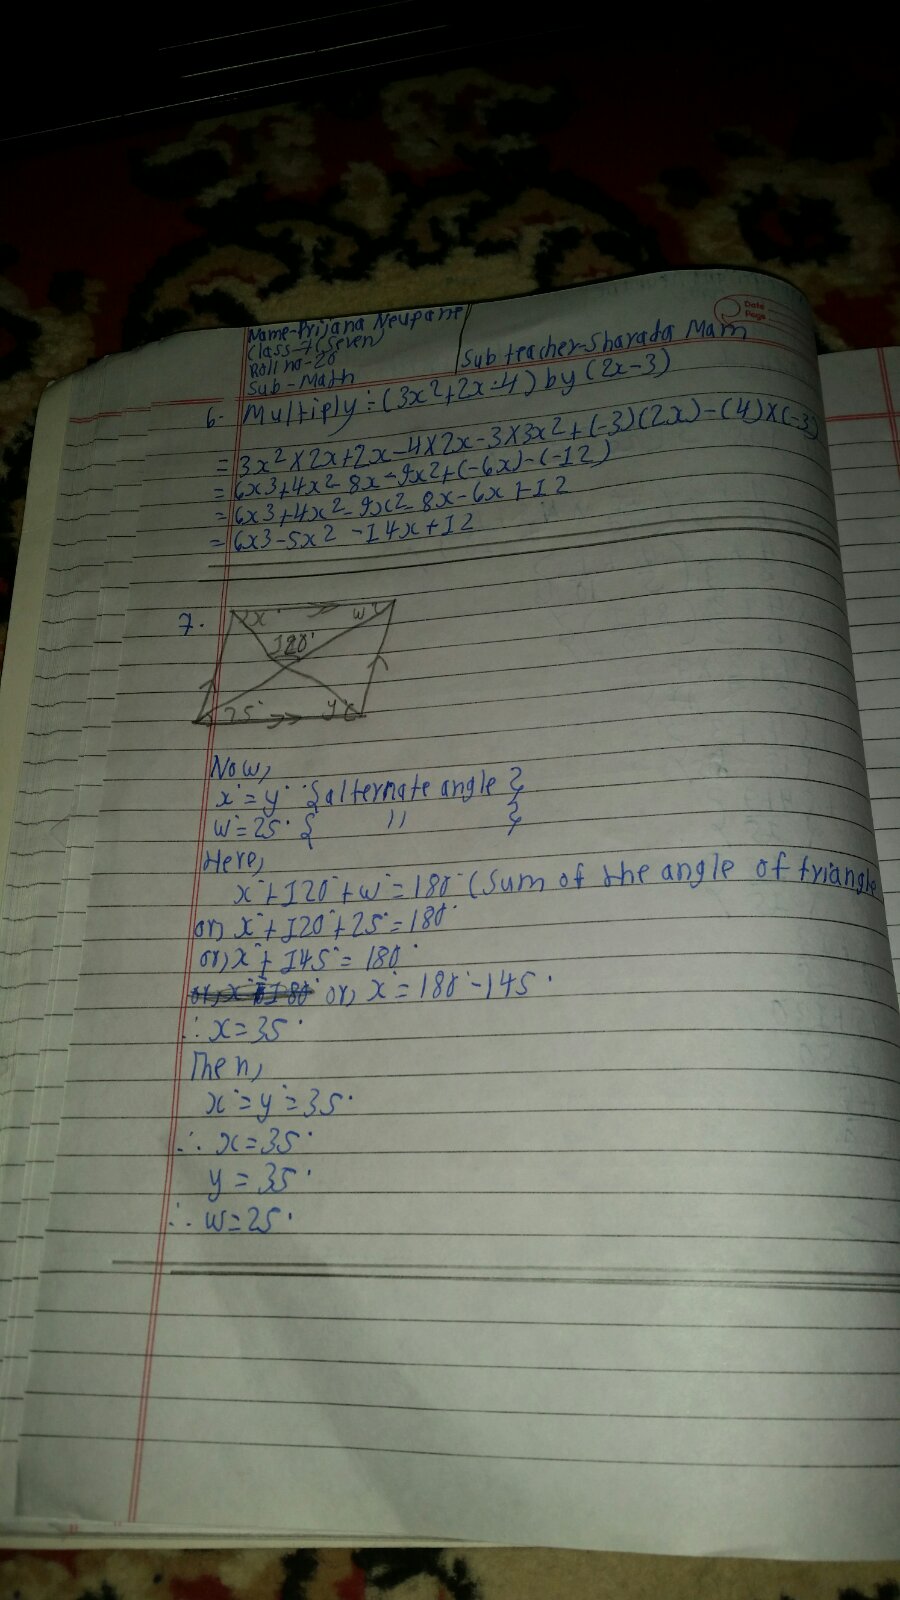 Date
Page
Name-Prijana Neupane
Class-7(Seven)
Roll no-28
Sub-Math
Sub teacher-Sharada Mam
6- Multiply:-(3x²+2x-4) by (2x-3)
= 3x²X2x+2x-4X2x-3X3x²+(-3)(2x)-(4)X(-3)
= 6x3+4x²-8x-9x²+(-6x)-(-12)
= 6x3+4x²-9x2-8x-6x+12
= 6x3-5x2-14x+12
7.
x° w°
120°
25° y°
Now,
x°=y° {alternate angle}
w=25° { " }
Here,
x°+120°+w°=180° (Sum of the angle of triangle
or, x°+120°+25°=180°
or, x°+145°=180°
or, x°=180°-145°
∴ x=35°
Then,
x°=y°=35°
∴ x=35°
y=35°
∴ w=25°